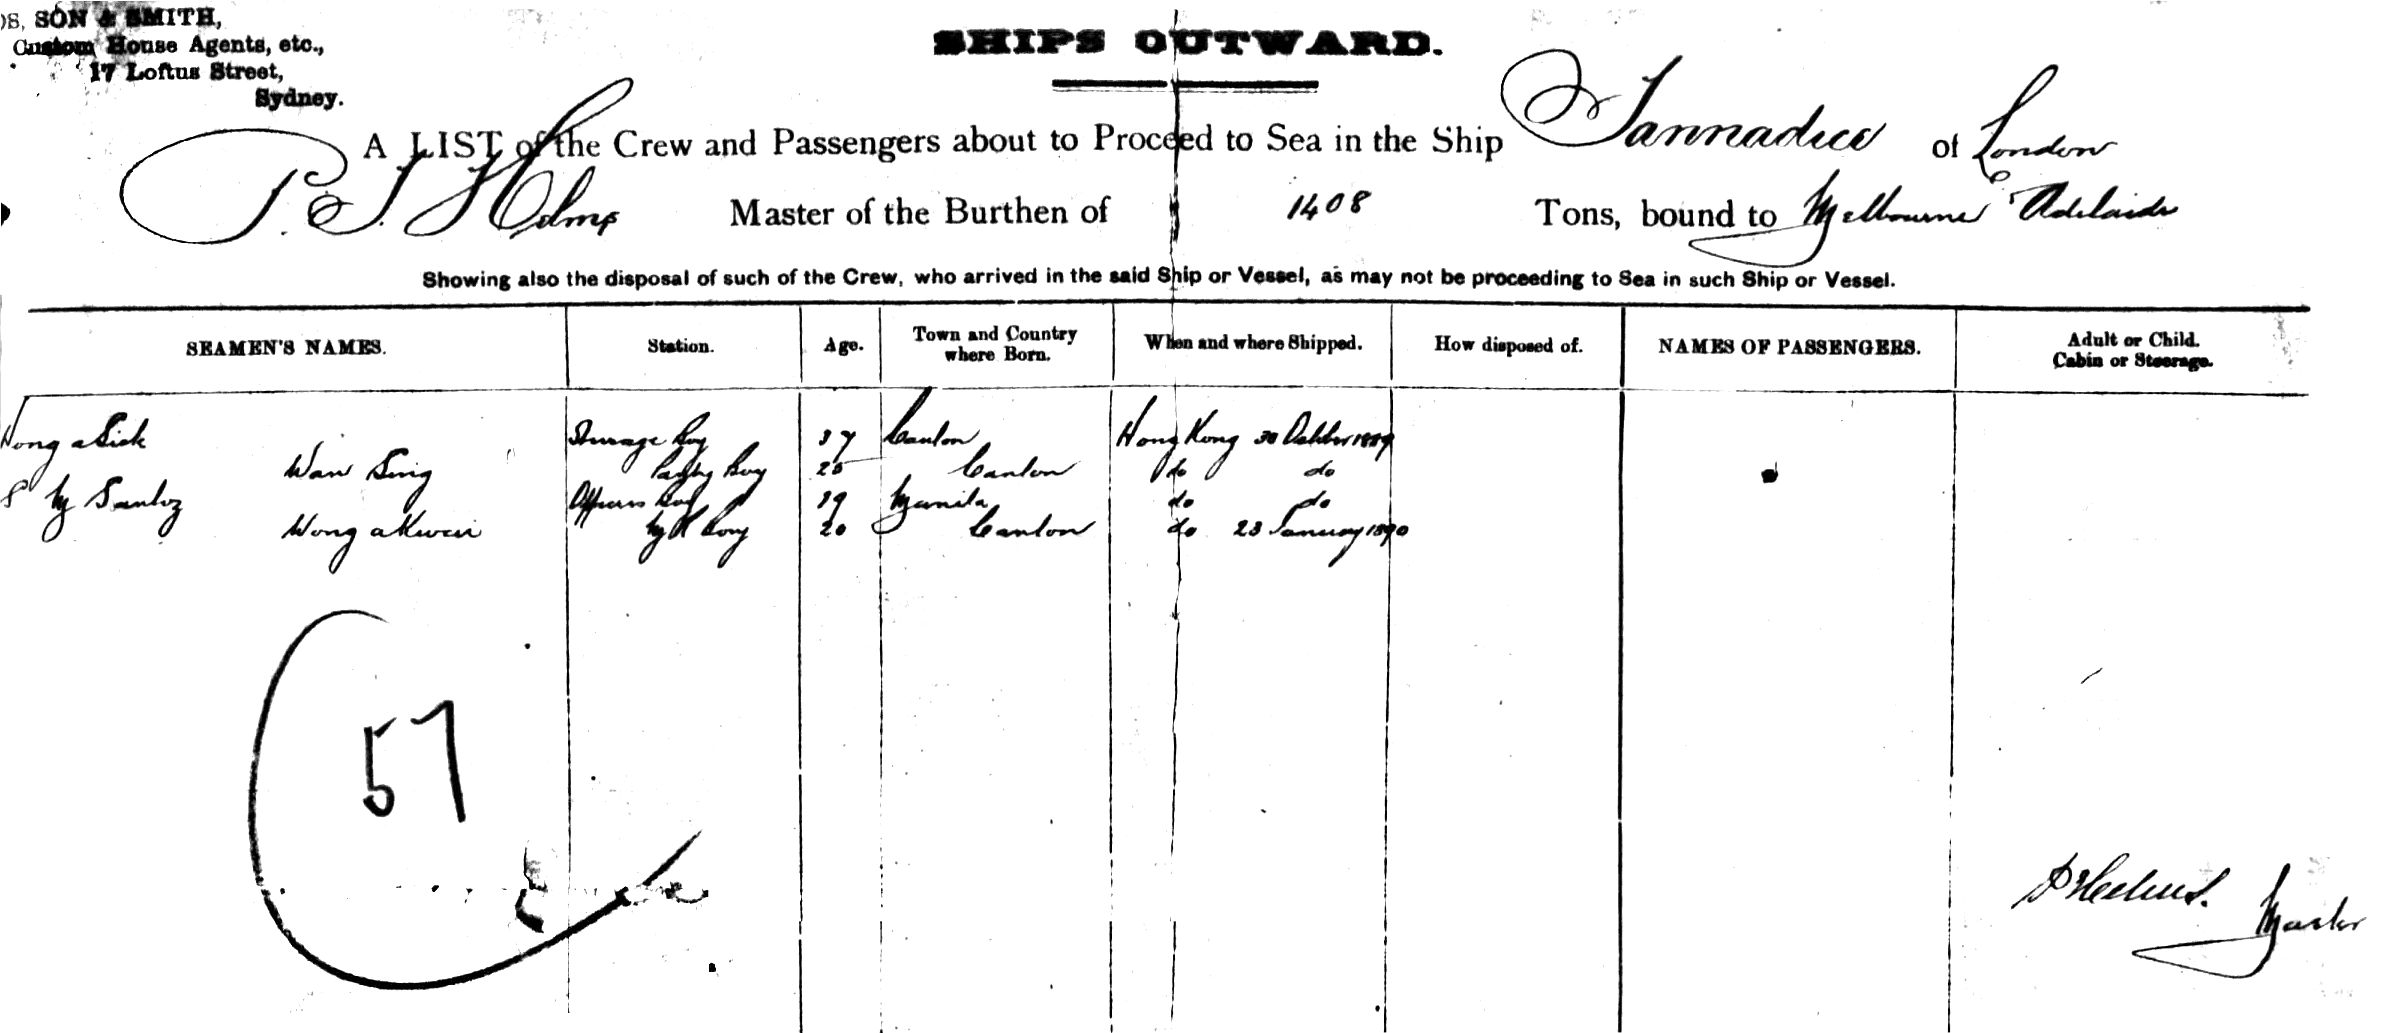 SON & SMITH,
Custom House Agents, etc.,
17 Loftus Street,
Sydney.
SHIPS OUTWARD.
A LIST of the Crew and Passengers about to Proceed to Sea in the Ship Tannadice of London
P. T. Helms Master of the Burthen of 1408 Tons, bound to Melbourne & Adelaide
Showing also the disposal of such of the Crew, who arrived in the said Ship or Vessel, as may not be proceeding to Sea in such Ship or Vessel.
SEAMEN'S NAMES. Station. Age. Town and Country where Born. When and where Shipped. How disposed of. NAMES OF PASSENGERS. Adult or Child. Cabin or Steerage.
Wong a Sick Steerage Boy 37 Canton Hong Kong 30 October 1889
Wan Sing Pantry Boy 25 Canton do do
M Santoz Officers Boy 19 Manila do do
Wong a Kwen Boy 20 Canton do 23 January 1890
57
P Helms. Master